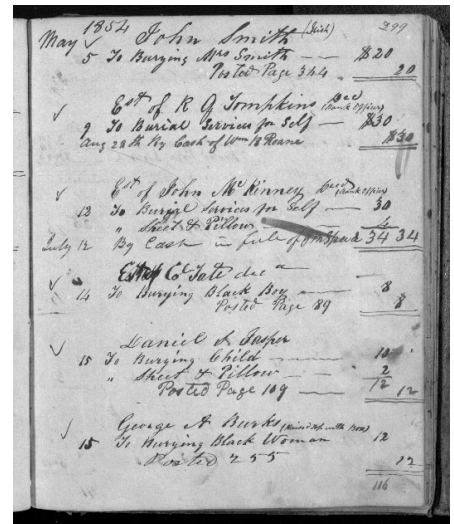 1854 299
May John Smith (Irish)
5 To Burying Mrs Smith $20
Posted Page 344 20
Est of R G Tompkins Decd (Bank Officer)
9 To Burial Services for Self $30
Aug 28th By Cash of Wm B Roane $30
Est of John McKinney Decd (Bank Officer)
13 To Burial Services for Self 30
" Sheet & Pillow 4
July 12 By Cash in full of 34 34
Est C Tate decd
14 To Burying Black Boy 8
Posted Page 89 8
Daniel S Jasper
15 To Burying Child 10
" Sheet & Pillow 2
Posted Page 109 12 12
George A Burks
15 To Burying Black Woman 12
Posted 255 12
116